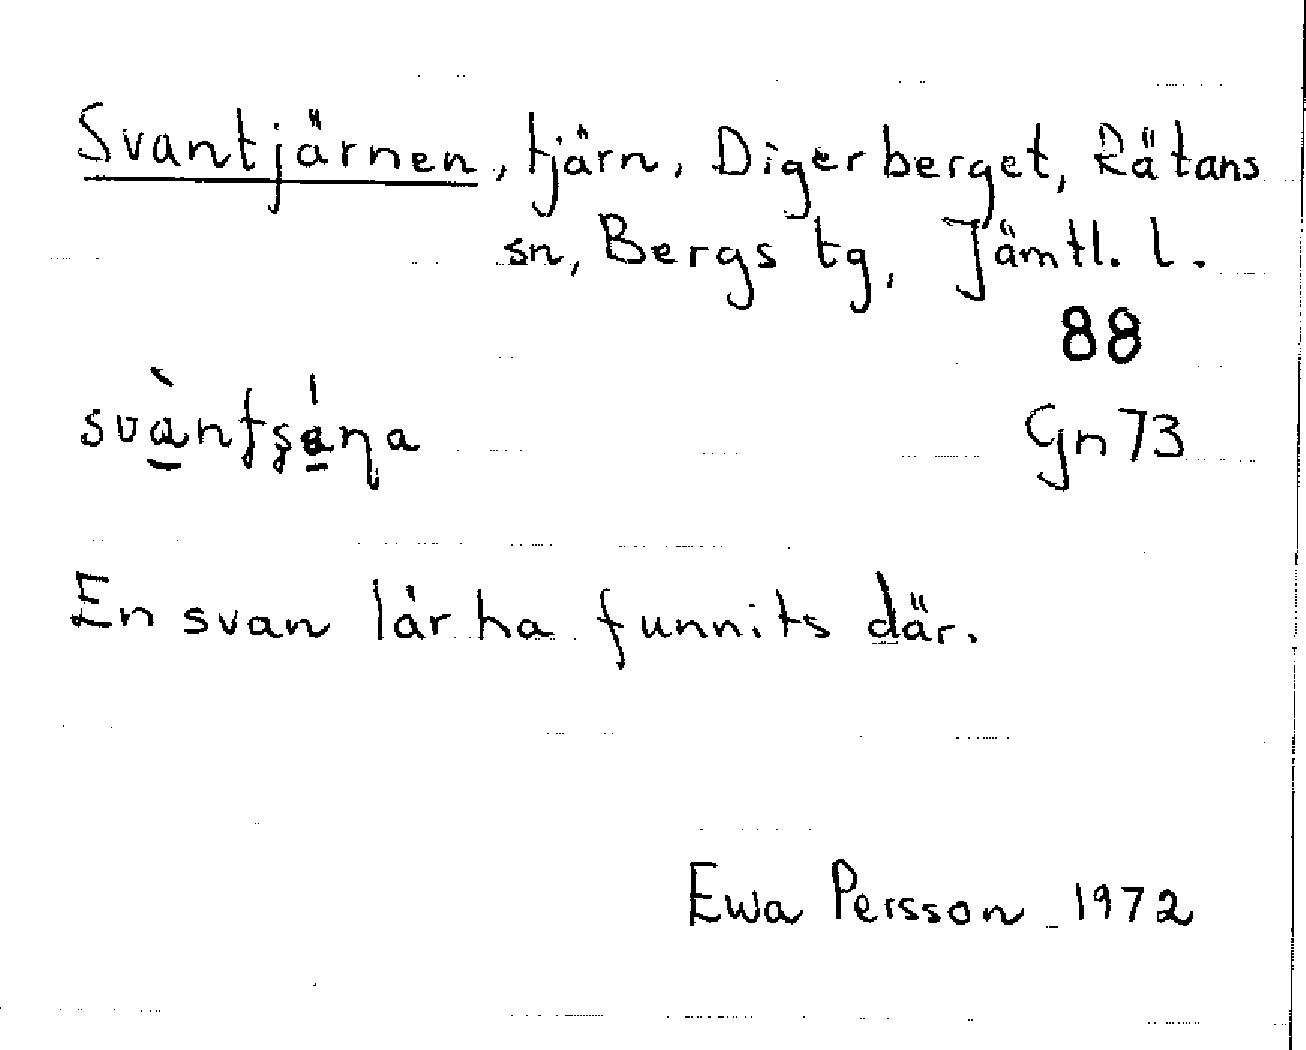 Svantjärnen, tjärn, Digerberget, Rätans
sn, Bergs tg, Jämtl. l.
88
Gn 73
En svan lär ha funnits där.
Ewa Persson 1972